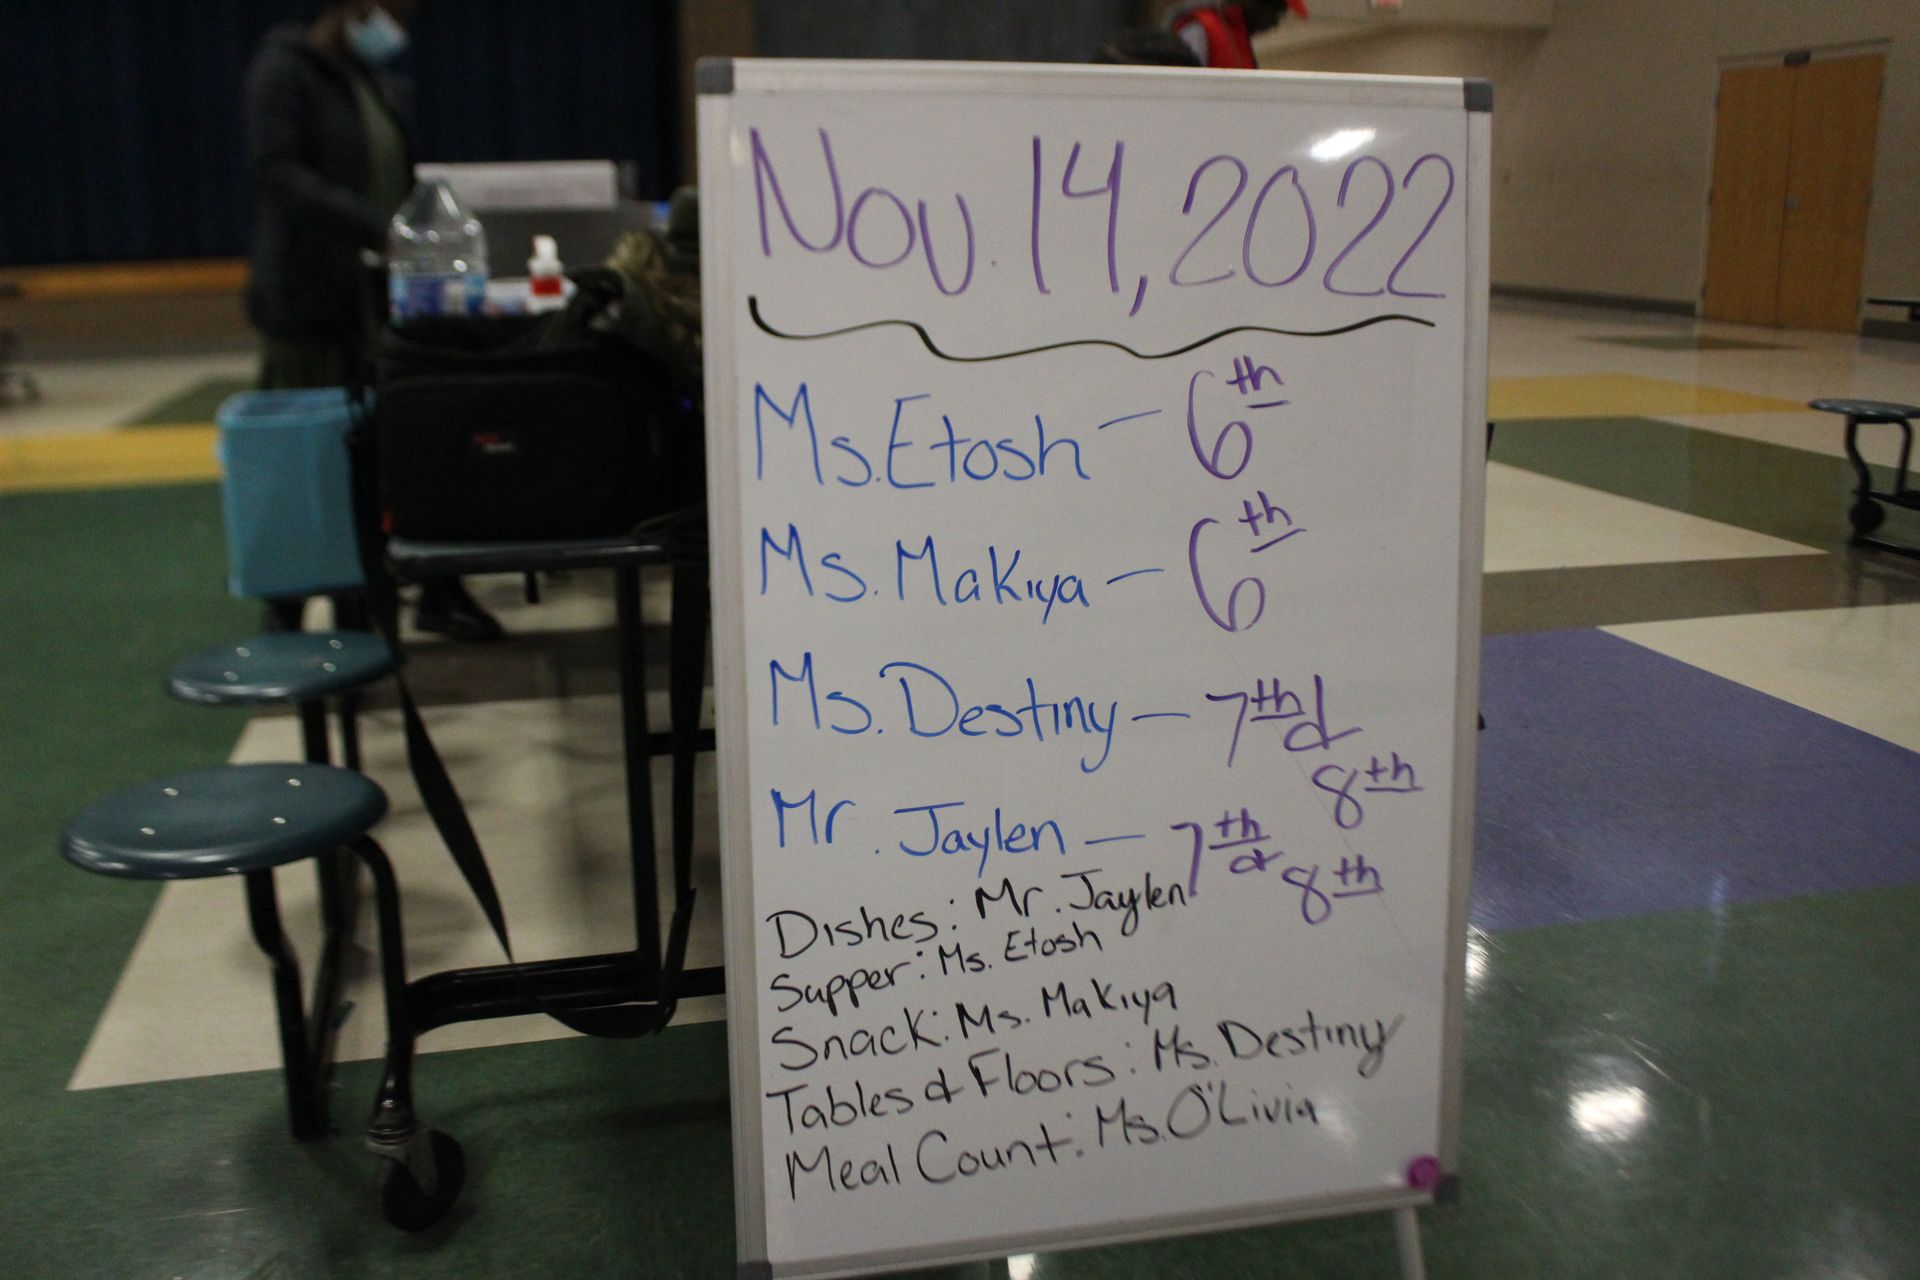 Nov. 14, 2022
Ms. Etosh - 6th
Ms. Makiya - 6th
Ms. Destiny - 7th &
8th
Mr. Jaylen - 7th & 8th
Dishes: Mr. Jaylen
Supper: Ms. Etosh
Snack: Ms. Makiya
Tables & Floors: Ms. Destiny
Meal Count: Ms. O'Livia